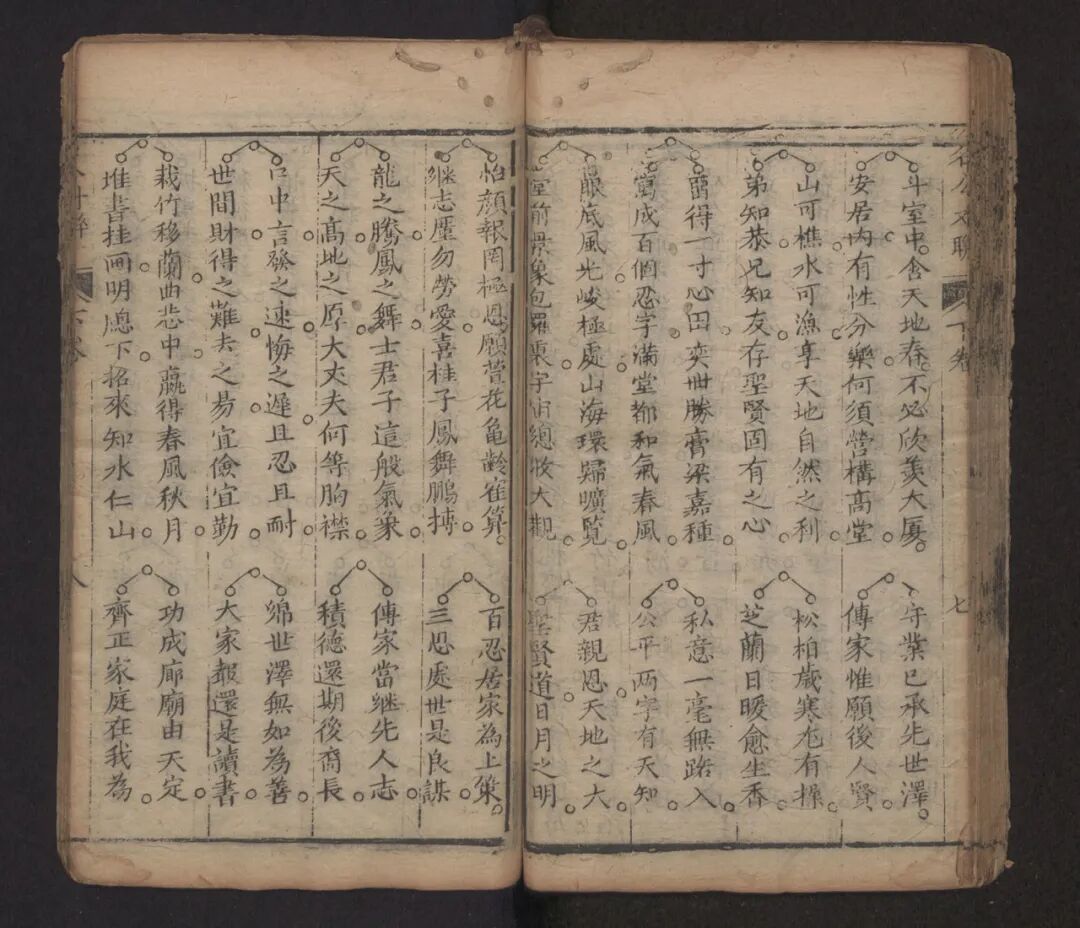 名公文聯 下卷 七
斗室中含天地春不必欣羨大厦
安居內有性分樂何須營構高堂
山可樵水可漁享天地自然之利
弟知恭兄知友存聖賢固有之心
留得一寸心田奕世勝膏粱嘉種
寫成百個忍字滿堂都和氣春風
眼底風光峻極處山海環歸曠覧
堂前景象包羅裏宇宙總收大觀
守業已承先世澤
傳家惟願後人賢
松柏歲寒尤有操
芝蘭日暖愈生香
私意一毫無路入
公平兩字有天知
君親恩天地之大
聖賢道日月之明
怡顏報罔極恩願萱花龜齡崔算
继志塵勿勞愛喜桂子鳳舞鵬摶
龍之騰鳳之舞士君子這般氣象
天之髙地之原大丈夫何等胸襟
口中言發之速悔之遲且忍且耐
世間財得之難去之易宜儉宜勤
栽竹移蘭曲悲中贏得春風秋月
堆書挂画明牕下招來知水仁山
百忍居家為上策
三思處世是良謀
傳家當継先人志
積德還期後裔長
綿世澤無如為善
大家聲還是讀書
功成廊廟由天定
齊正家庭在我為
八